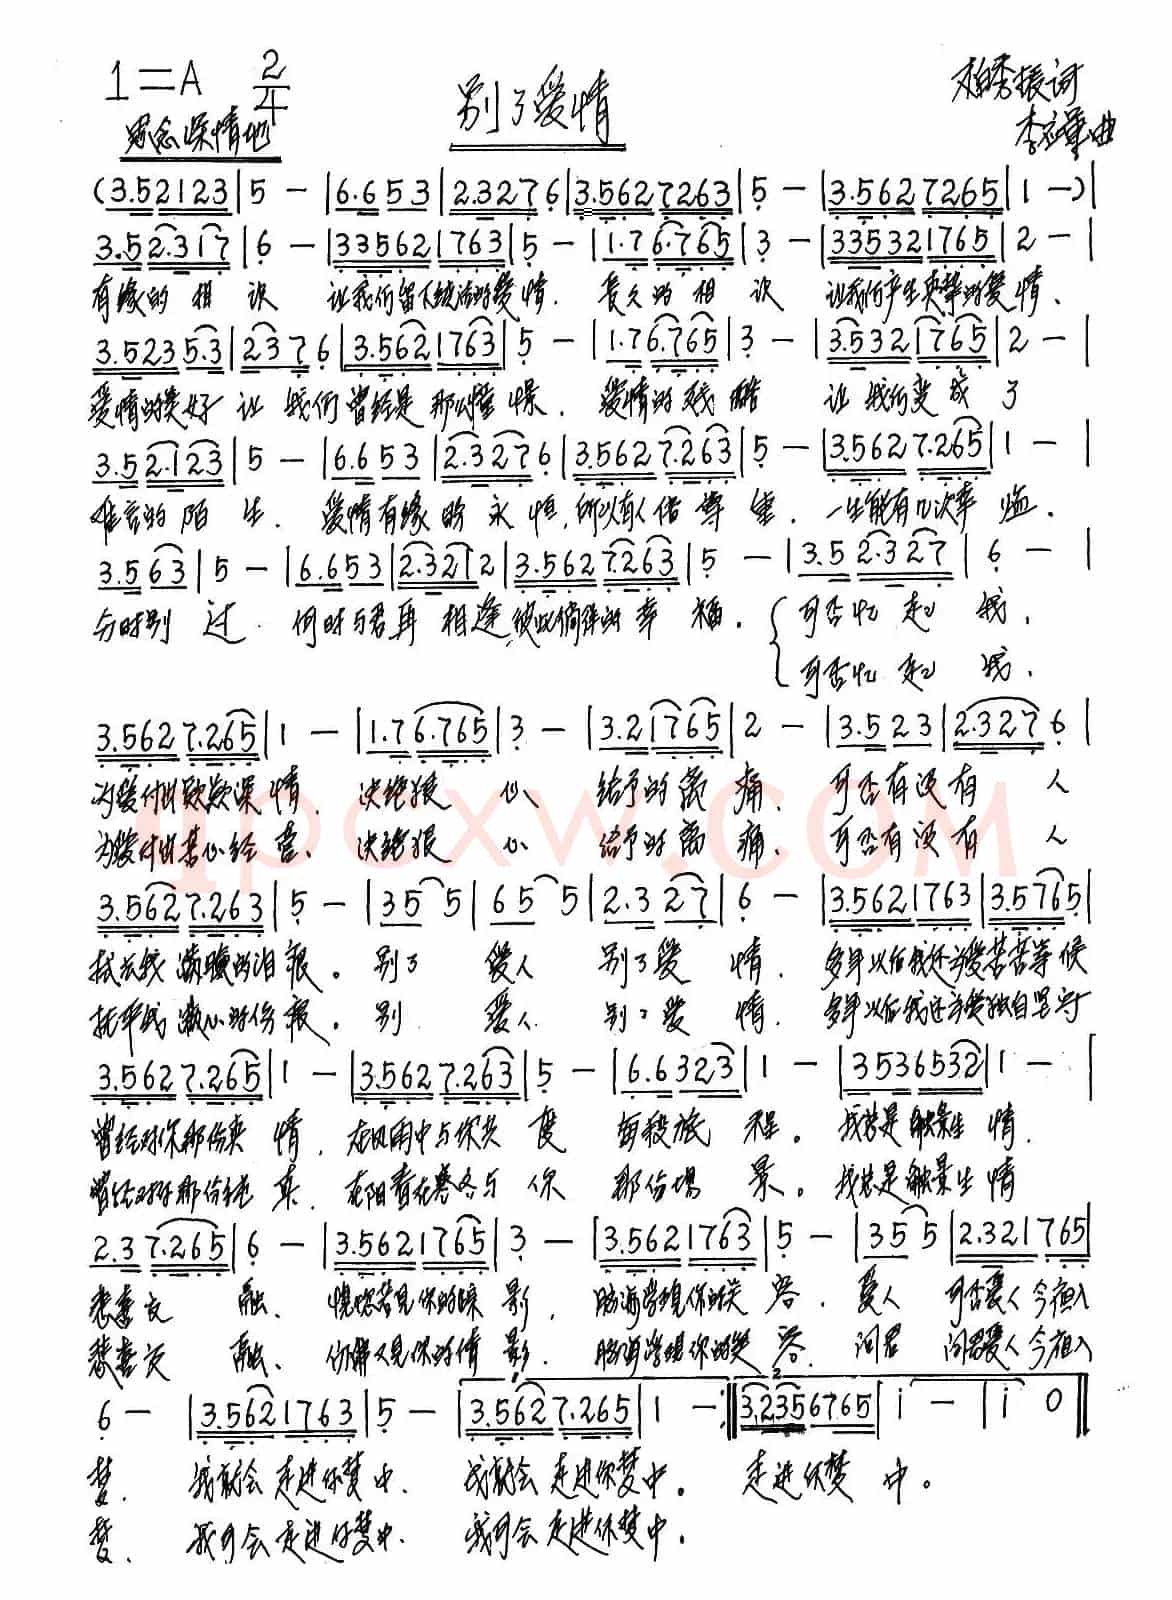 1=A 2/4 别了爱情 柏秀振词
思念深情地 李 曲
(3.52123|5 -|6.653|2.3276|3.5627263|5 -|3.5627265|1 -)|
3.52.317|6 -|335621763|5 -|1.76.765|3 -|335321765|2 -|
有缘的相识 让我们留下纯洁的爱情. 长久的相识 让我们产生真挚的爱情、
3.5235.3|2376|3.5621763|5 -|1.76.765|3 -|3.5321765|2 -|
爱情的美好 让我们曾经是那么憧憬. 爱情的残酷 让我们变成了
3.52.123|5 -|6.653|2.3276|3.5627.263|5 -|3.5627.265|1 -|
难言的陌生. 爱情有缘的永恒,所以有人倍尊重. 一生能有几次幸 .
3.563|5 -|6.653|2.3212|3.5627.263|5 -|3.52.327|6 -|
与时别过. 何时与君再相逢彼此 的幸福. 可否忆起我.
可否忆起我.
3.5627.265|1 -|1.76.765|3 -|3.21765|2 -|3.523|2.3276|
为爱付出款款深情. 决绝狠心 给予的离痛. 可否有没有人
qpcxw.com
为爱付出苦心经营. 决绝狠心 给予的离痛. 可否有没有人
3.5627.263|5 -|355|655|2.327|6 -|3.5621763|3.5765|
拭去我满腹的泪痕。别了爱人 别了爱情. 多年以后我还为爱苦苦等候
抚平我 心的伤痕。别 爱人. 别了爱情. 多年以后我还为爱独自坚守
3.5627.265|1 -|3.5627.263|5 -|6.6323|1 -|3536532|1 -|
曾经对你那份爽情. 在风雨中与你共度 每段旅程。我总是触景生情.
曾经对你那份纯真. 在阳春在寒冬与你 那份场景。我总是触景生情
2.37.265|6 -|3.5621765|3 -|3.5621763|5 -|355|2.321765|
悲喜交融. 恍惚若见你的踪影. 脑海浮现你的笑容. 爱人 可否爱人今夜入
悲喜交融、仿佛又见你的倩影. 脑海浮现你的笑容. 问君 问君爱人今夜入
6 -|3.5621763|5 -|3.5627.265|1 -:‖3.2356765|i -|i 0‖
梦. 我就会走进你梦中. 我就会走进你梦中。 走进你梦中。
梦. 我可会走进你梦中. 我可会走进你梦中.